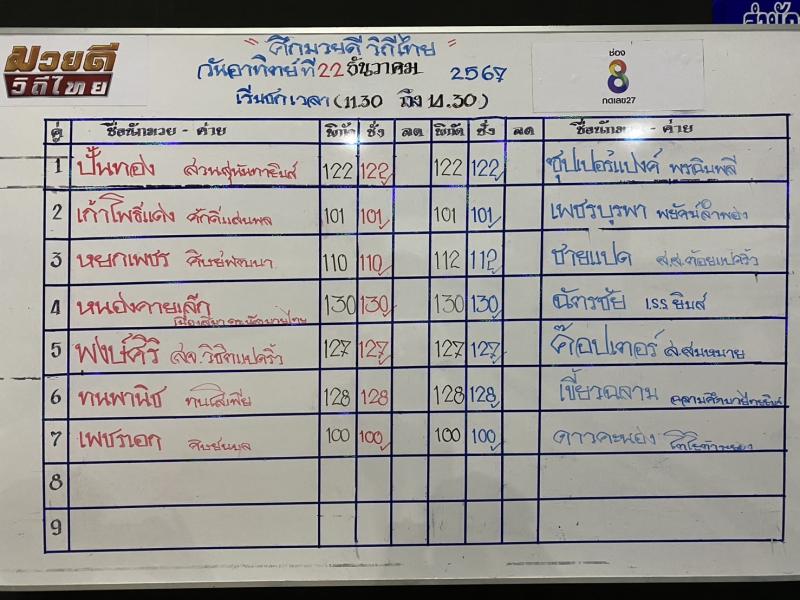 สำนัก
มวยดี
วิถีไทย
" ศึกมวยดี วิถีไทย "
วันอาทิตย์ที่ 22 ธันวาคม 2567
เริ่มชกเวลา (11.30 ถึง 14.30)
ช่อง
8
กดเลข27
คู่ ชื่อนักมวย - ค่าย พิกัด ชั่ง ลด พิกัด ชั่ง ลด ชื่อนักมวย - ค่าย
1 ปั้นทอง สวนสุนันทายิมส์ 122 122 122 122 ซุปเปอร์แบงค์ พรฉิมพลี
2 เก้าโพธิ์แดง ศักดิ์แสนพล 101 101 101 101 เพชรบูรพา
3 หยกเพชร 110 110 112 112 ชายแปด
4 หนองคายเล็ก 130 130 130 130 ฉัตรชัย I.S.S ยิมส์
5 พงษ์ศิริ สจ.วิชิตแปดริ้ว 127 127 127 127 ก๊อปเตอร์ ส.สมหมาย
6 ทนพานิช 128 128 128 128 เขี้ยวฉลาม
7 เพชรเอก 100 100 100 100 ดาวคะนอง
8
9